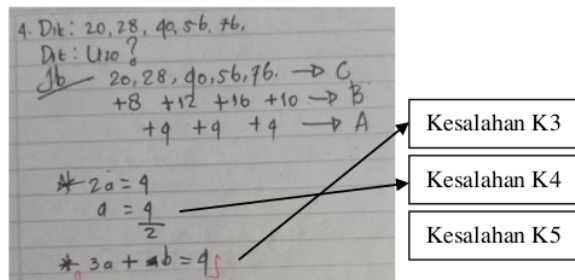 4. Dik: 20, 28, 40, 56, 76,
Dit: U20?
Jb 20, 28, 40, 56, 76. → C
+8 +12 +16 +10 → B
+4 +4 +4 → A
* 2a = 4
a = 4
2
* 3a + b = 4
Kesalahan K3
Kesalahan K4
Kesalahan K5